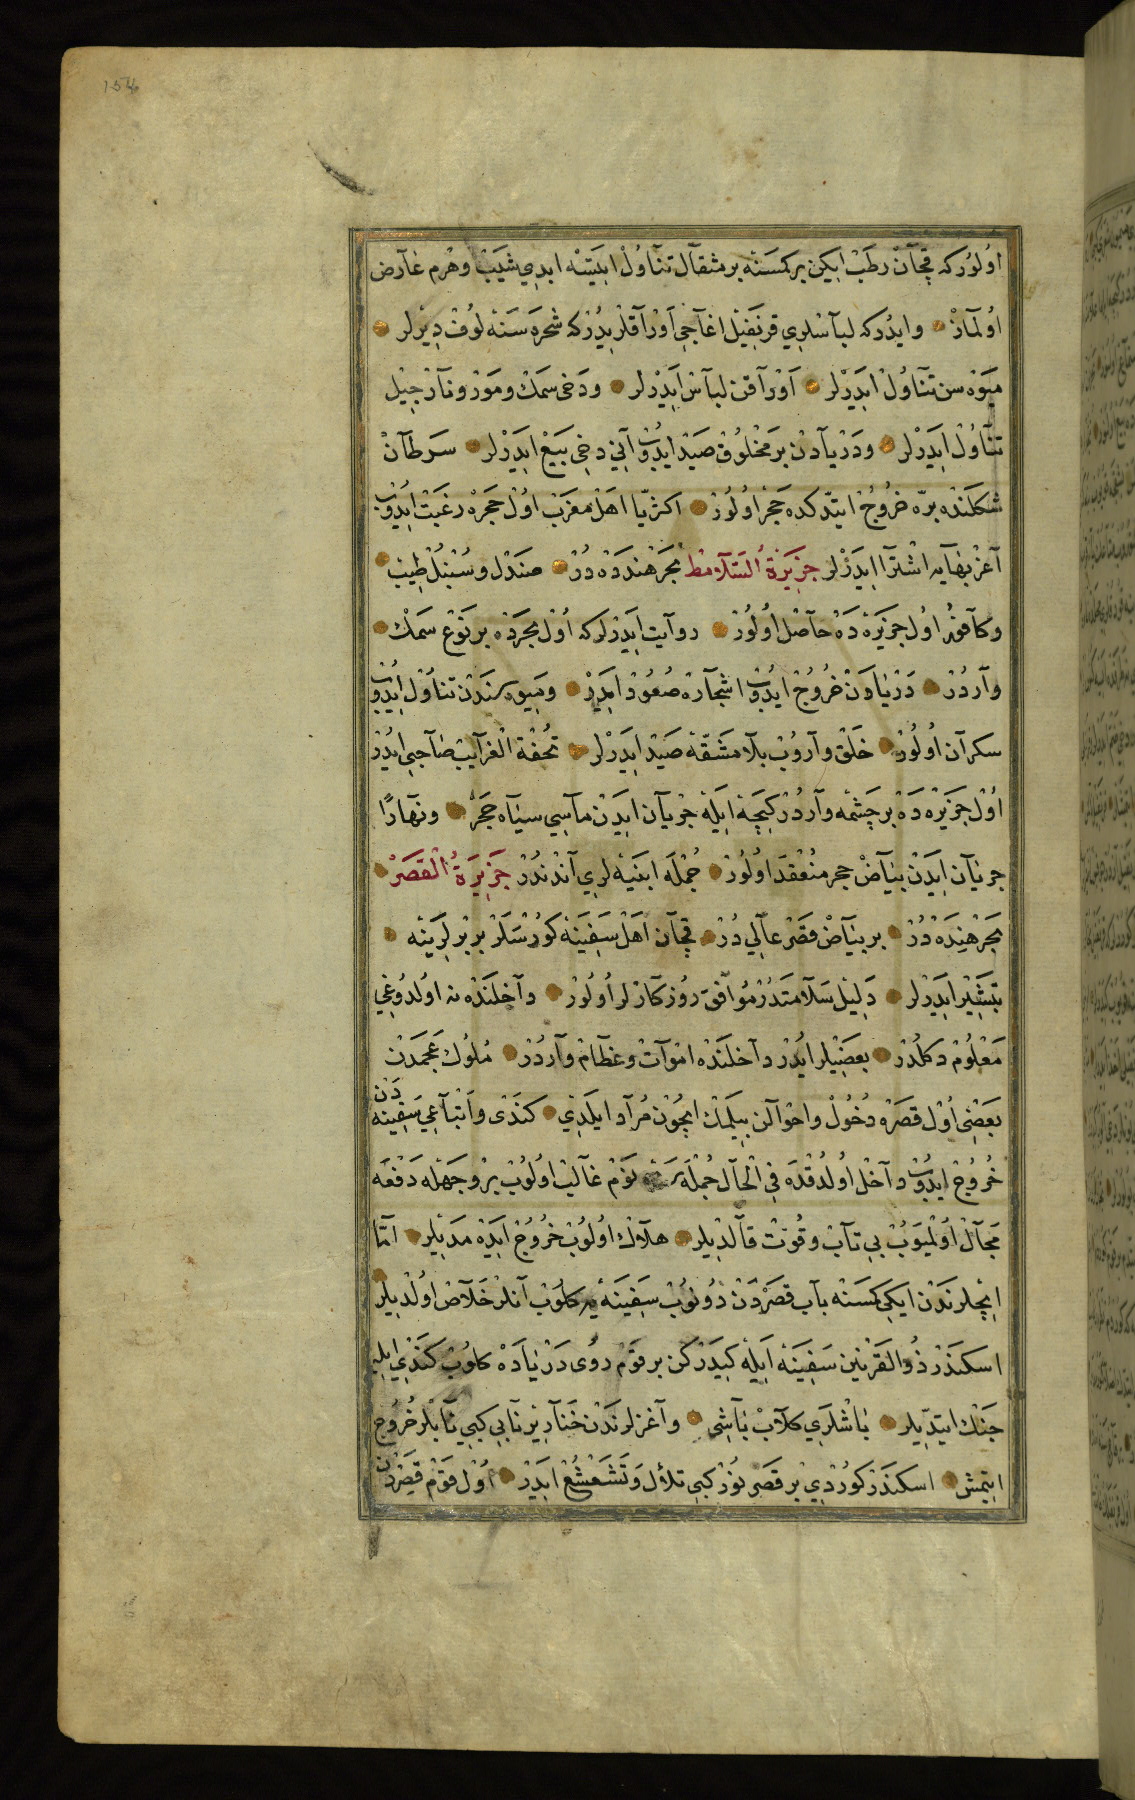 154
اولوركه قچان رطب ايكن بر كمسنه بر مثقال تناول ايليسه ابدي شيب وهرم عارض
اولماز وايدركه لباسلري قرنفيل اغاجي اوراقلريدركه شجره سنه لوف ديرلر
ميوه سن تناول ايدرلر اوراقن لباس ايدرلر ودخى سمك وموز ونارجيل
تناول ايدرلر ودريادن بر مخلوق صيد ايدوب آني دخى بيع ايدرلر سرطان
شكلنده بره خروج ايتدكده حجر اولور اكثريا اهل مغرب اول حجره رغبت ايدوب
آغر بهايه اشترا ايدرلر جزيرة السلامط بحر هنده در صندل وسنبل طيب
وكافور اول جزيره ده حاصل اولور روآيت ايدرلركه اول بحرده بر نوع سمك
واردر دريادن خروج ايدوب اشجاره صعود ايدر وميوه سندن تناول ايدوب
سكران اولور خلق واروب بلا مشقة صيد ايدرلر تحفة الغرايب صاحبى ايدر
اول جزيره ده بر چشمه واردر كيجه ايله جريان ايدن مآسي سياه حجر ونهارًا
جريان ايدن بياض حجر منعقد اولور جمله ابنيه لري آندندر جزيرة القصر
بحر هنده در بر بياض قصر عالي در قچان اهل سفينه كورسلر بربرلرينه
تبشير ايدرلر دليل سلامتدر موافق روزكارلر اولور داخلنده نه اولدوغي
معلوم دكلدر بعضيلر ايدر داخلنده اموات وعظام واردر ملوك عجمدن
بعضى اول قصره دخول واحوالن بيلمك ايچون مراد ايلدي كندى واتباعي سفينه دن
خروج ايدوب داخل اولدقده في الحال جمله سنه نوم غالب اولوب بر وجهله دفعه
مجال اولميوب بي تاب وقوت قالديلر هلاك اولوب خروج ايده مديلر اما
ايچلرندن ايكي كمسنه باب قصردن دونوب سفينه يه كلوب آنلر خلاص اولديلر
اسكندر ذو القرنين سفينه ايله كيدركن بر قوم روى درياده كلوب كندي ايله
جنك ايتديلر باشلري كلاب باشى وآغزلرندن خنادير نابي كبي نابلر خروج
ايتمش اسكندر كوردي بر قصر نور كبي تلألل وتشعشع ايدر اول قوم قصردن